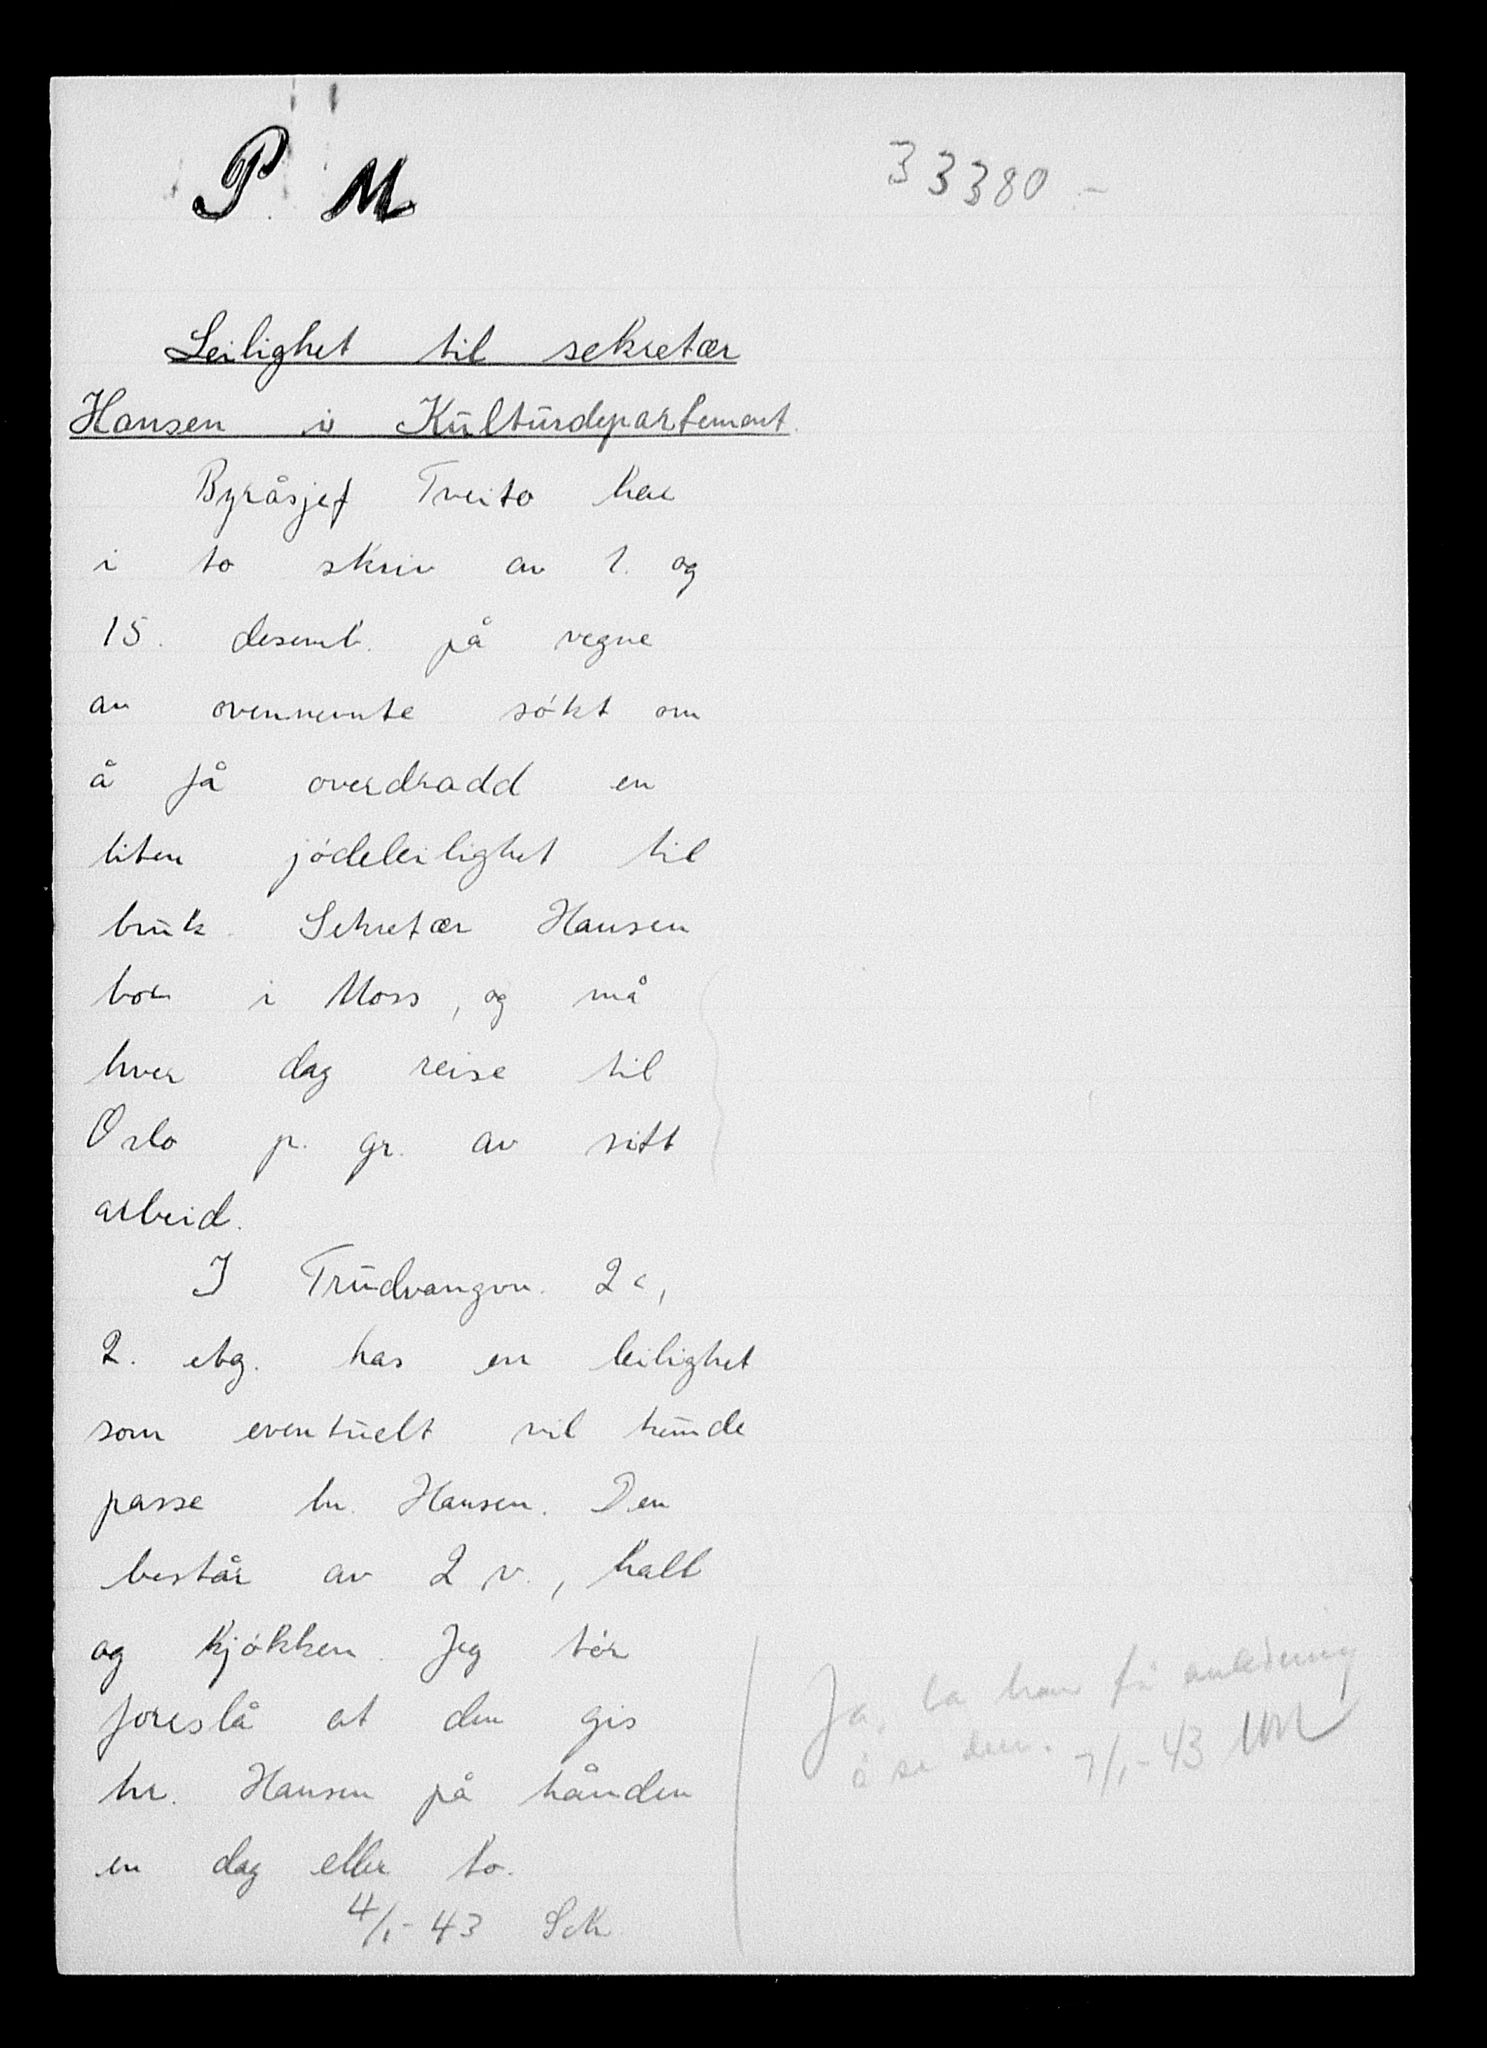 P. M
33380 -
Leilighet til sekretær
Hansen i Kulturdepartement.
Byråsjef Tveito har
i to skriv av 1. og
15. desemb. på vegne
av ovennevnte søkt om
å få overdradd en
liten jødeleilighet til
bruk. Sekretær Hansen
bor i Moss, og må
hver dag reise til
Oslo p. gr. av sitt
arbeid.
I Trudvangvn. 2c,
2. etg. has en leilighet
som eventuelt vil kunde
passe hr. Hansen. Den
består av 2 v., hall
og kjøkken. Jeg tør
foreslå at den gis
hr. Hansen på hånden
en dag eller to.
4/1-43 Sch
Ja, la ham få anledning
å se den. 7/1-43